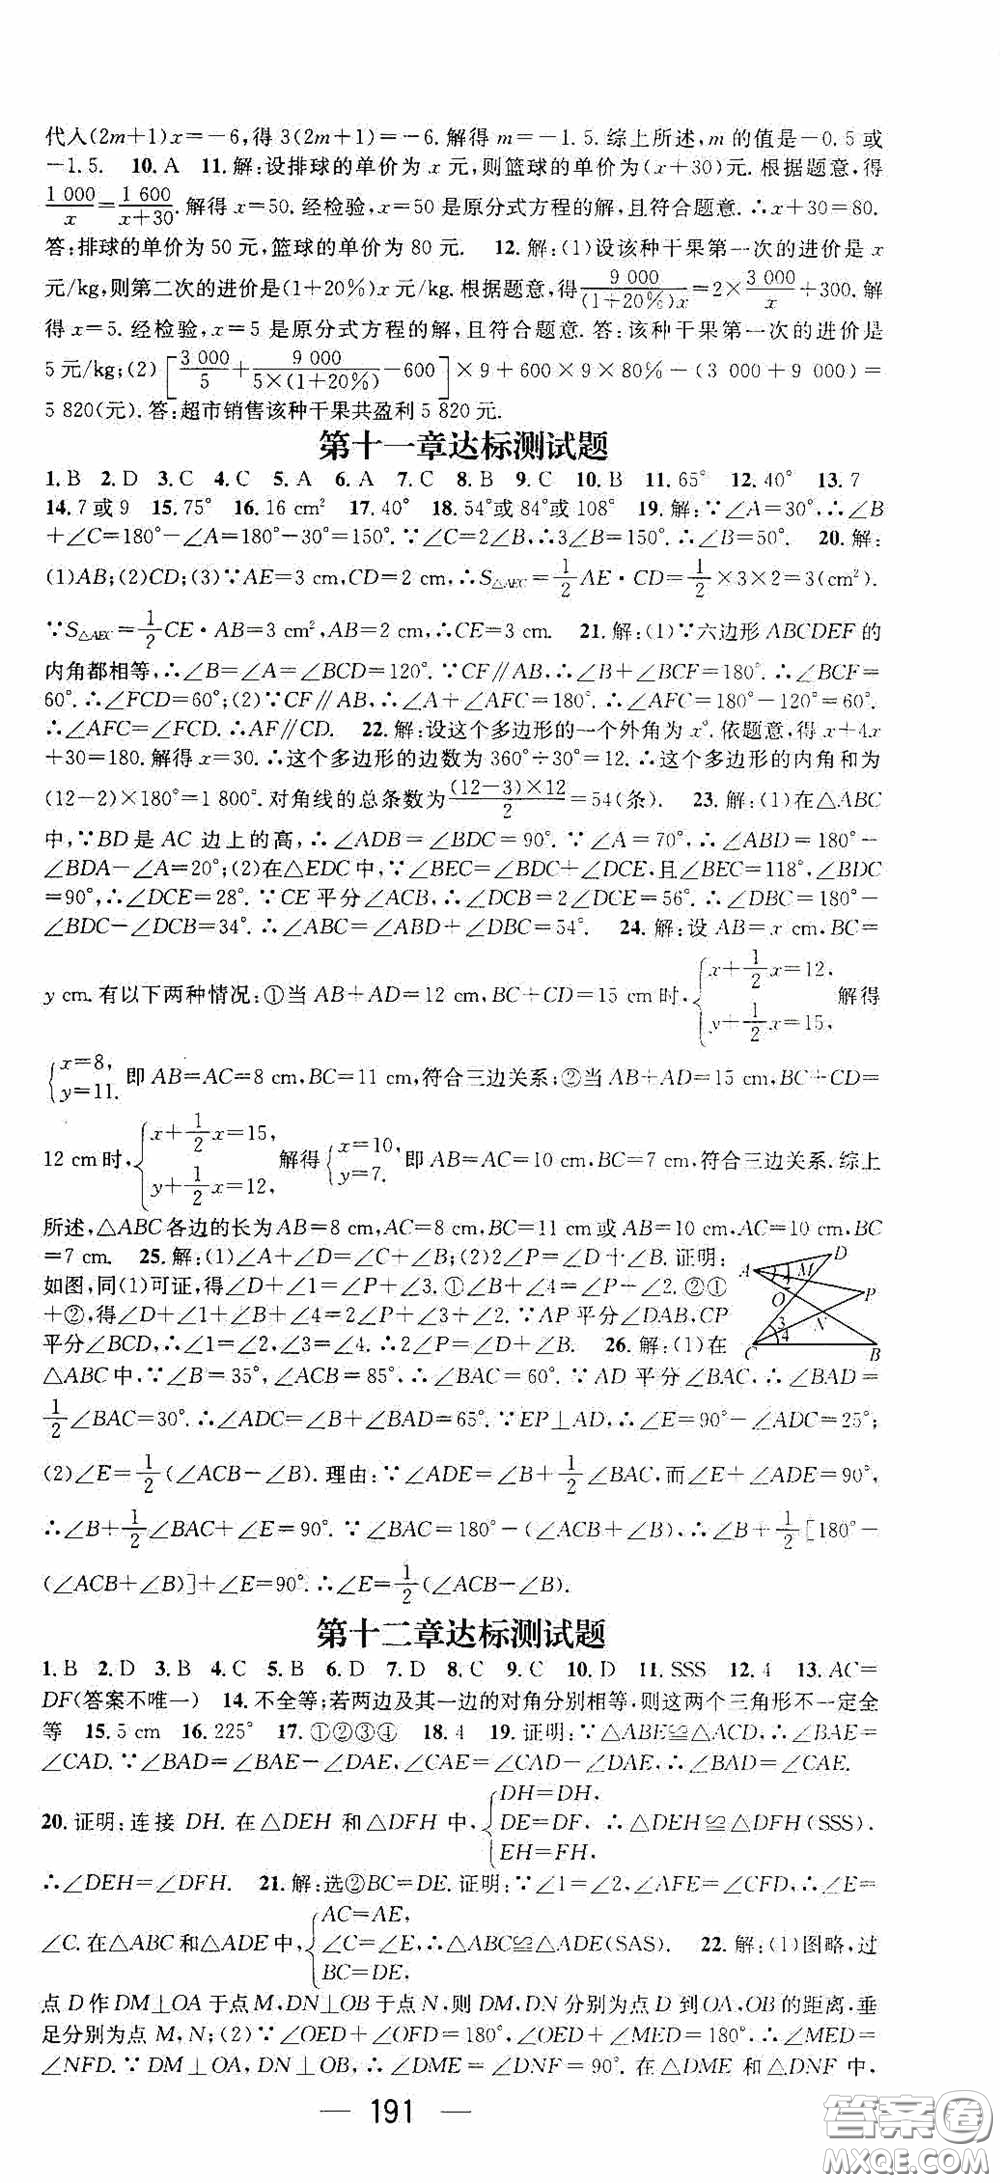 代入(2m+1)x=-6,得3(2m+1)=-6.解得m=-1.5.综上所述,m的值是-0.5或
-1.5. 10.A 11.解:设排球的单价为x元,则篮球的单价为(x+30)元.根据题意,得
1 000/x=1 600/(x+30).解得x=50.经检验,x=50是原分式方程的解,且符合题意.∴x+30=80.
答:排球的单价为50元,篮球的单价为80元. 12.解:(1)设该种干果第一次的进价是x
元/kg,则第二次的进价是(1+20%)x元/kg.根据题意,得9 000/((1+20%)x)=2×3 000/x+300.解
得x=5.经检验,x=5是原分式方程的解,且符合题意.答:该种干果第一次的进价是
5元/kg;(2)[3 000/5+9 000/(5×(1+20%))-600]×9+600×9×80%-(3 000+9 000)=
5 820(元).答:超市销售该种干果共盈利5 820元.
第十一章达标测试题
1.B 2.D 3.C 4.C 5.A 6.A 7.C 8.B 9.C 10.B 11.65° 12.40° 13.7
14.7或9 15.75° 16.16 cm² 17.40° 18.54°或84°或108° 19.解:∵∠A=30°,∴∠B
+∠C=180°-∠A=180°-30°=150°.∵∠C=2∠B,∴3∠B=150°.∴∠B=50°. 20.解:
(1)AB;(2)CD;(3)∵AE=3 cm,CD=2 cm,∴S△AEC=1/2AE·CD=1/2×3×2=3(cm²).
∵S△AEC=1/2CE·AB=3 cm²,AB=2 cm,∴CE=3 cm. 21.解:(1)∵六边形ABCDEF的
内角都相等,∴∠B=∠A=∠BCD=120°.∵CF∥AB,∴∠B+∠BCF=180°.∴∠BCF=
60°.∴∠FCD=60°;(2)∵CF∥AB,∴∠A+∠AFC=180°.∴∠AFC=180°-120°=60°.
∴∠AFC=∠FCD.∴AF∥CD. 22.解:设这个多边形的一个外角为x°.依题意,得x+4x
+30=180.解得x=30.∴这个多边形的边数为360°÷30°=12.∴这个多边形的内角和为
(12-2)×180°=1 800°.对角线的总条数为(12-3)×12/2=54(条). 23.解:(1)在△ABC
中,∵BD是AC边上的高,∴∠ADB=∠BDC=90°.∵∠A=70°,∴∠ABD=180°-
∠BDA-∠A=20°;(2)在△EDC中,∵∠BEC=∠BDC+∠DCE,且∠BEC=118°,∠BDC
=90°,∴∠DCE=28°.∵CE平分∠ACB,∴∠DCB=2∠DCE=56°.∴∠DBC=180°-
∠BDC-∠DCB=34°.∴∠ABC=∠ABD+∠DBC=54°. 24.解:设AB=x cm,BC=
y cm.有以下两种情况:①当AB+AD=12 cm,BC+CD=15 cm时,{x+1/2x=12, y+1/2x=15,解得
{x=8, y=11.即AB=AC=8 cm,BC=11 cm,符合三边关系;②当AB+AD=15 cm,BC+CD=
12 cm时,{x+1/2x=15, y+1/2x=12,解得{x=10, y=7.即AB=AC=10 cm,BC=7 cm,符合三边关系.综上
所述,△ABC各边的长为AB=8 cm,AC=8 cm,BC=11 cm或AB=10 cm,AC=10 cm,BC
=7 cm. 25.解:(1)∠A+∠D=∠C+∠B;(2)2∠P=∠D+∠B.证明:
如图,同(1)可证,得∠D+∠1=∠P+∠3.①∠B+∠4=∠P+∠2.②①
+②,得∠D+∠1+∠B+∠4=2∠P+∠3+∠2.∵AP平分∠DAB,CP
平分∠BCD,∴∠1=∠2,∠3=∠4.∴2∠P=∠D+∠B. 26.解:(1)在
A D M P O N C B 3 4
△ABC中,∵∠B=35°,∠ACB=85°,∴∠BAC=60°.∵AD平分∠BAC,∴∠BAD=
1/2∠BAC=30°.∴∠ADC=∠B+∠BAD=65°.∵EP⊥AD,∴∠E=90°-∠ADC=25°;
(2)∠E=1/2(∠ACB-∠B).理由:∵∠ADE=∠B+1/2∠BAC,而∠E+∠ADE=90°,
∴∠B+1/2∠BAC+∠E=90°.∵∠BAC=180°-(∠ACB+∠B),∴∠B+1/2[180°-
(∠ACB+∠B)]+∠E=90°.∴∠E=1/2(∠ACB-∠B).
第十二章达标测试题
1.B 2.D 3.B 4.C 5.B 6.D 7.D 8.C 9.C 10.D 11.SSS 12.4 13.AC=
DF(答案不唯一) 14.不全等;若两边及其一边的对角分别相等,则这两个三角形不一定全
等 15.5 cm 16.225° 17.①②③④ 18.4 19.证明:∵△ABE≌△ACD,∴∠BAE=
∠CAD.∵∠BAD=∠BAE-∠DAE,∠CAE=∠CAD-∠DAE,∴∠BAD=∠CAE.
20.证明:连接DH.在△DEH和△DFH中,{DH=DH, DE=DF, EH=FH,∴△DEH≌△DFH(SSS).
∴∠DEH=∠DFH. 21.解:选②BC=DE.证明:∵∠1=∠2,∠AFE=∠CFD,∴∠E=
∠C.在△ABC和△ADE中,{AC=AE, ∠C=∠E, BC=DE,∴△ABC≌△ADE(SAS). 22.解:(1)图略,过
点D作DM⊥OA于点M,DN⊥OB于点N,则DM,DN分别为点D到OA,OB的距离,垂
足分别为点M,N;(2)∵∠OED+∠OFD=180°,∠OED+∠MED=180°,∴∠MED=
∠NFD.∵DM⊥OA,DN⊥OB,∴∠DME=∠DNF=90°.在△DME和△DNF中,
— 191 —
答案圈
MXQE.COM